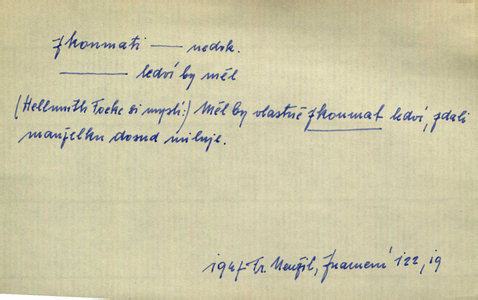 zkoumati — nedok.
——— ledví by měl
(Hellmuth Focke si myslí:) Měl by vlastně zkoumat ledví, zdali
manželku dosud miluje.
1947 Fr. Neužil, Znamení 122, 19